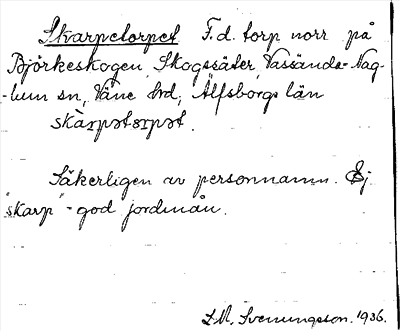 Skarpetorpet F.d. torp norr på
Björkeskogen, Skogssäter, Vassända-Nag-
-lum sn, Väne hrd, Älfsborgs län
skàrpətɔrpət.
Säkerligen av personnamn. Ej
"skarp"-god jordmån.
L.M. Svenungsson. 1936.